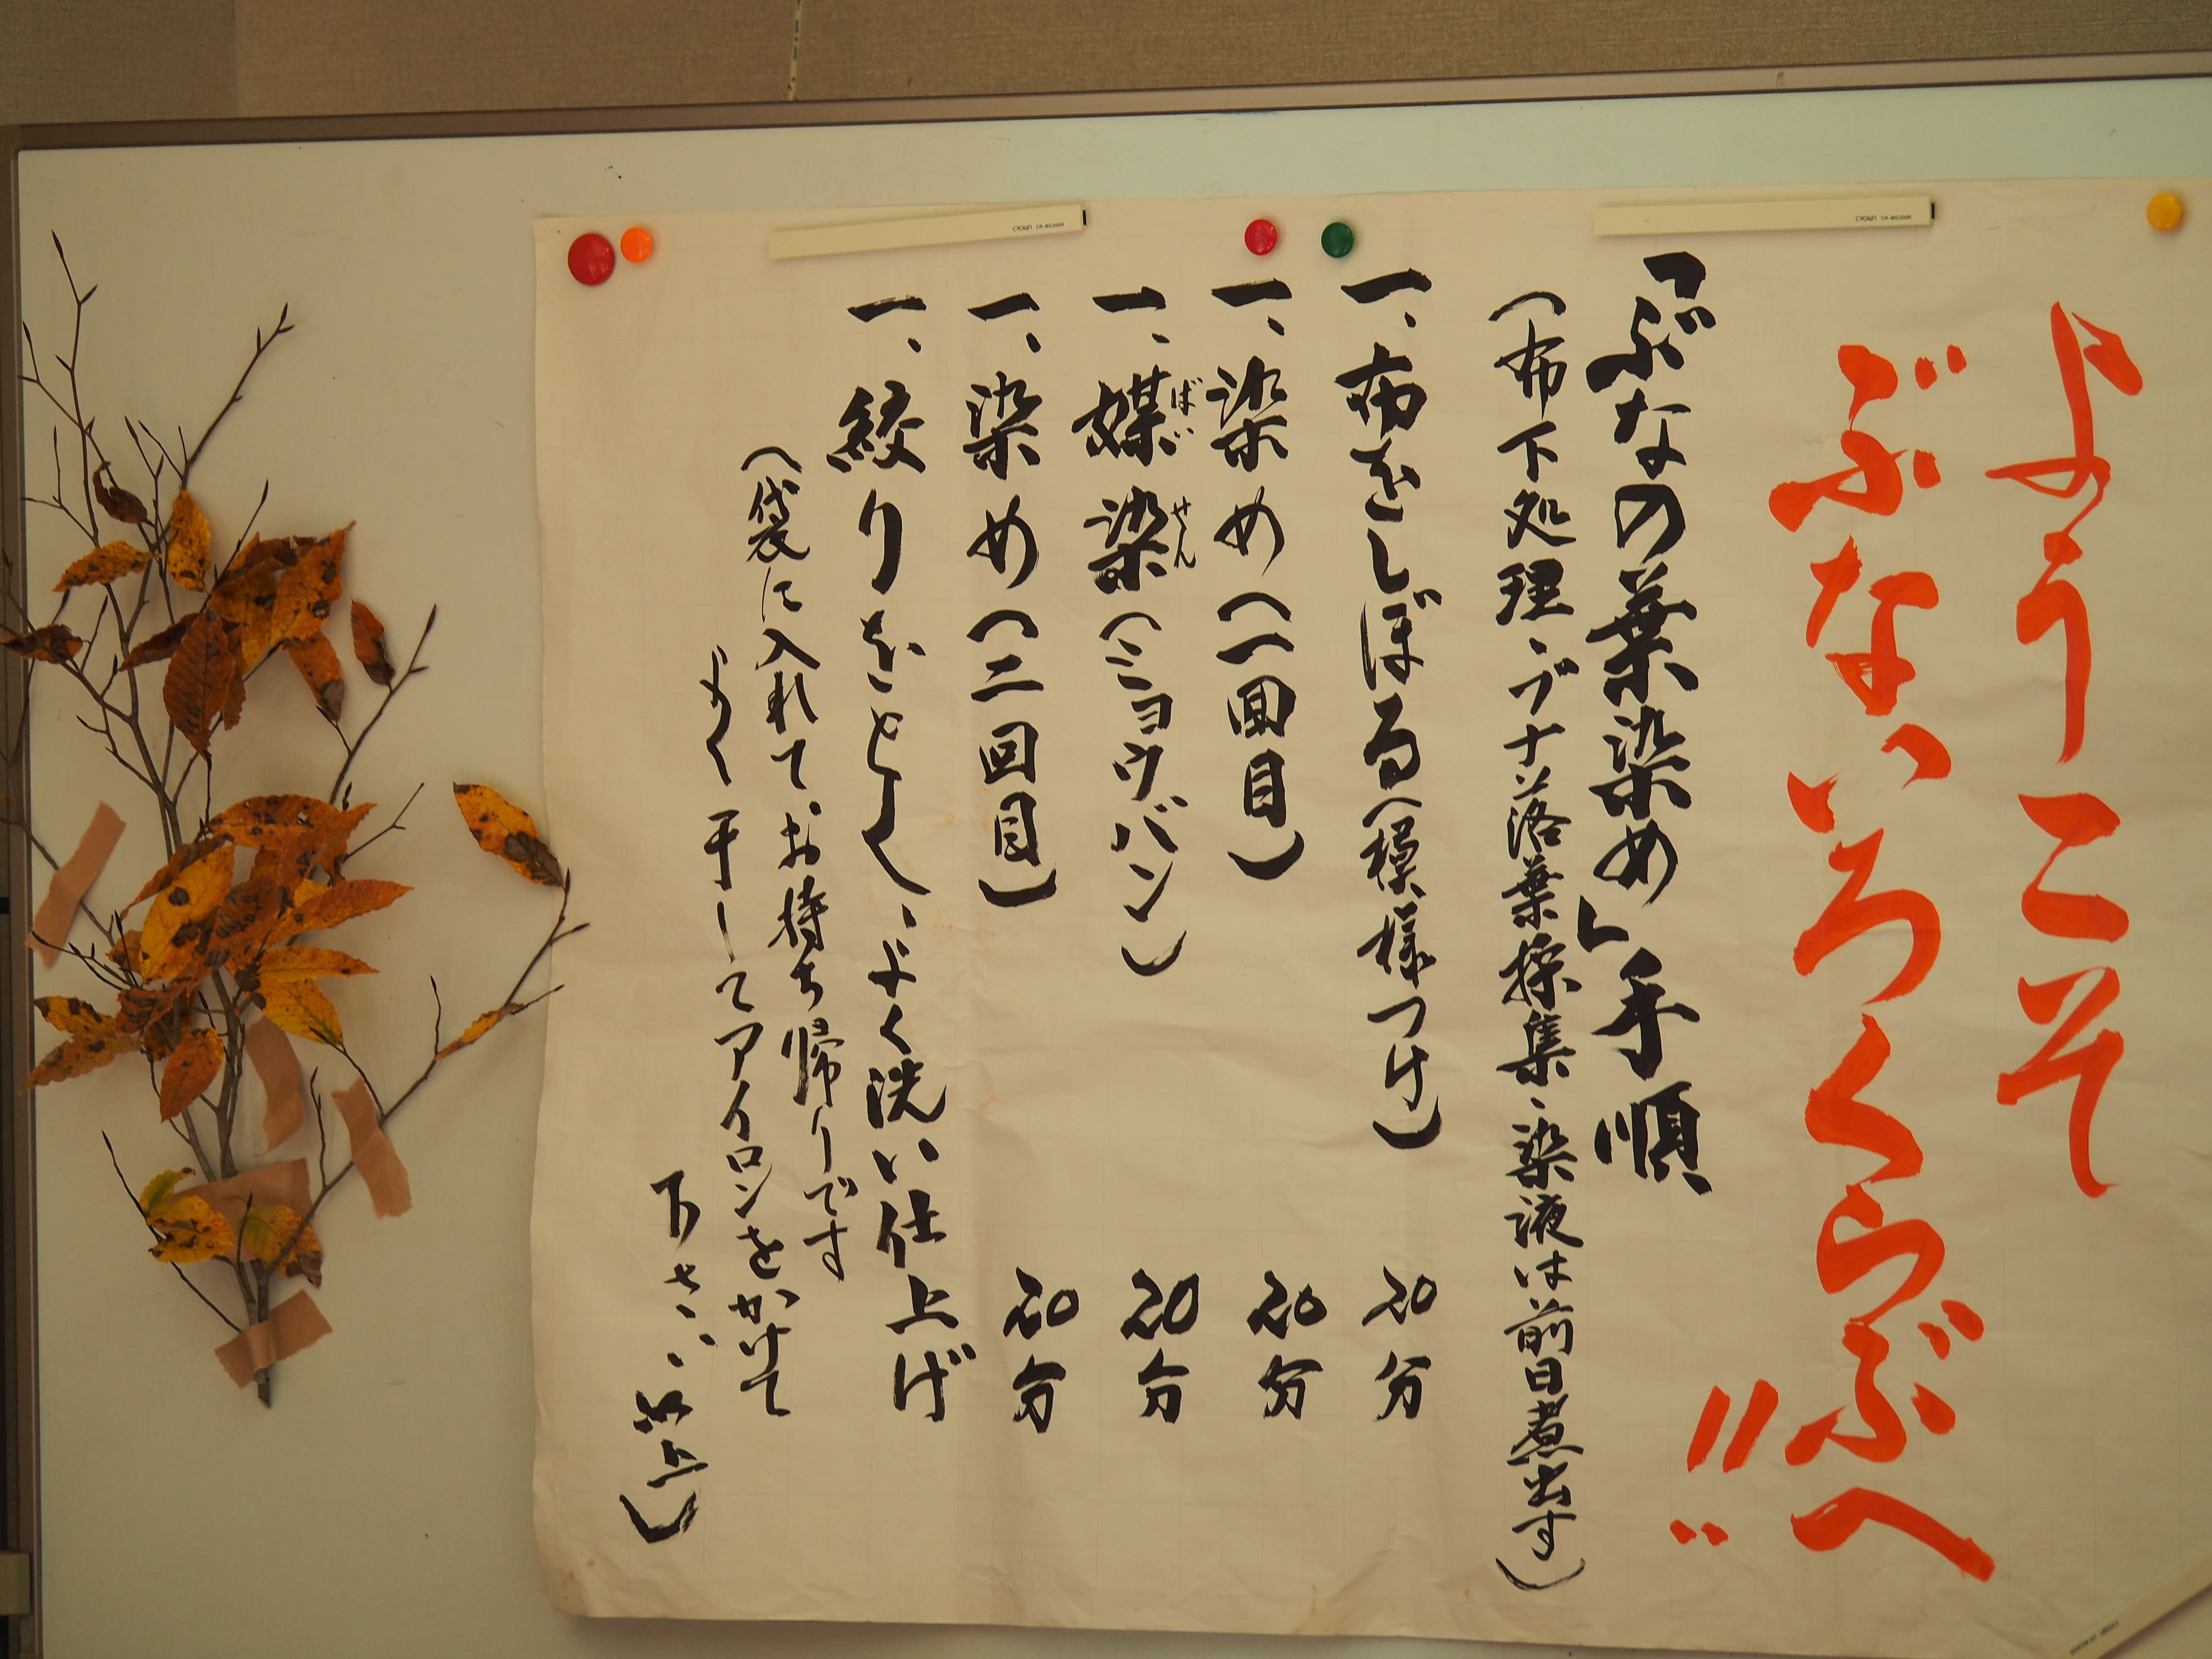 ようこそ
ぶないろくらぶへ!!
「ぶなの葉染め」手順
(布下処理、ブナ落葉採集、染液は前日煮出す)
一、布をしぼる(模様つけ) 20分
一、染め(一回目) 20分
一、媒染(ミョウバン) 20分
ばいせん
一、染め(二回目) 20分
一、絞りをとし、よく洗い仕上げ
(袋に入れてお持ち帰りです
よく干してアイロンをかけて
下さい 以上)
CROWN CR-MG200R
CROWN CR-MG200R